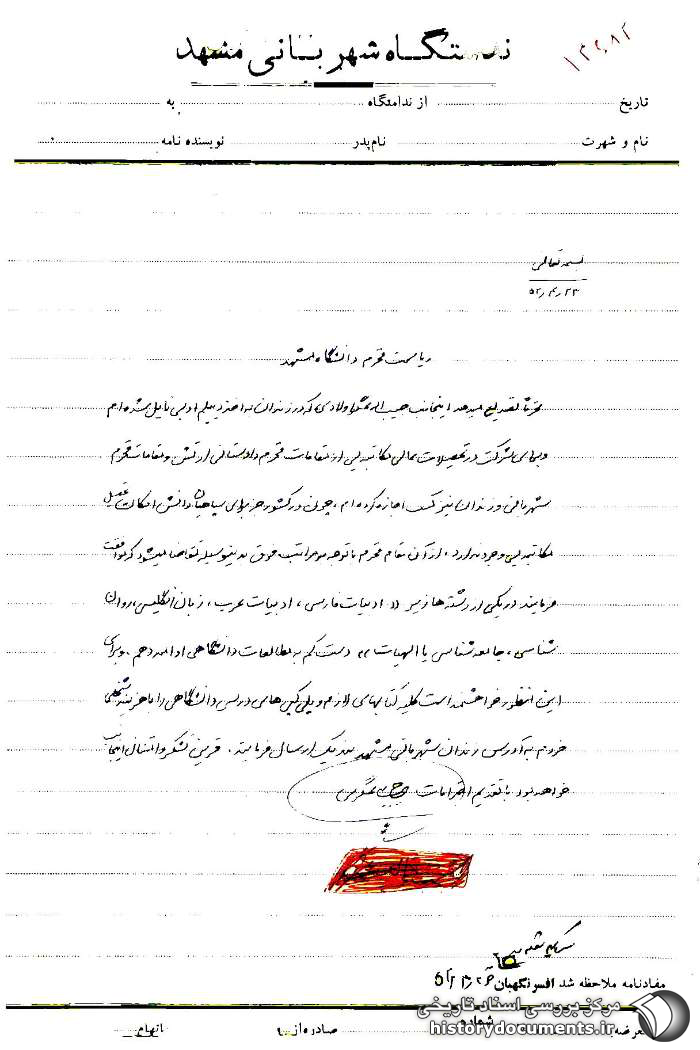 ندامتگاه شهربانی مشهد
تاریخ از ندامتگاه به
نام و شهرت نام پدر نویسنده نامه
بسمه تعالی
ریاست محترم دانشگاه مشهد
محترماً تصدیع میدهد اینجانب حبیب اله عسگراولادی که در زندان به اخذ دیپلم ادبی نایل شده ام
و برای شرکت در تحصیلات عالی مکاتبه ای از مقامات محترم دادستانی ارتش و مقامات محترم
شهربانی و زندان نیز کسب اجازه کرده ام، چون در کشور جز برای سپاهیان دانش امکانات تحصیل
مکاتبه ای وجود ندارد، از آن مقام محترم با توجه بمراتب فوق بدینوسیله تقاضا میشود که موافقت
فرمایند در یکی از رشته ها زیر «ادبیات فارسی، ادبیات عرب، زبان انگلیسی، روان
شناسی، جامعه شناسی یا الهیات» دست کم به مطالعات دانشگاهی ادامه دهم. و برای
این منظور خواهشمند است کلیه کتابهای لازم و پلی کپی های درسی دانشگاهی را با هزینه شخصی
خودم به آدرس زندان شهربانی مشهد ارسال فرمایند. قرین تشکر و امتنان اینجانب
خواهد بود با تقدیم احترامات
مفادنامه ملاحظه شد افسر نگهبان
شماره صادره از اتهام
مرکز بررسی اسناد تاریخی
historydocuments.ir